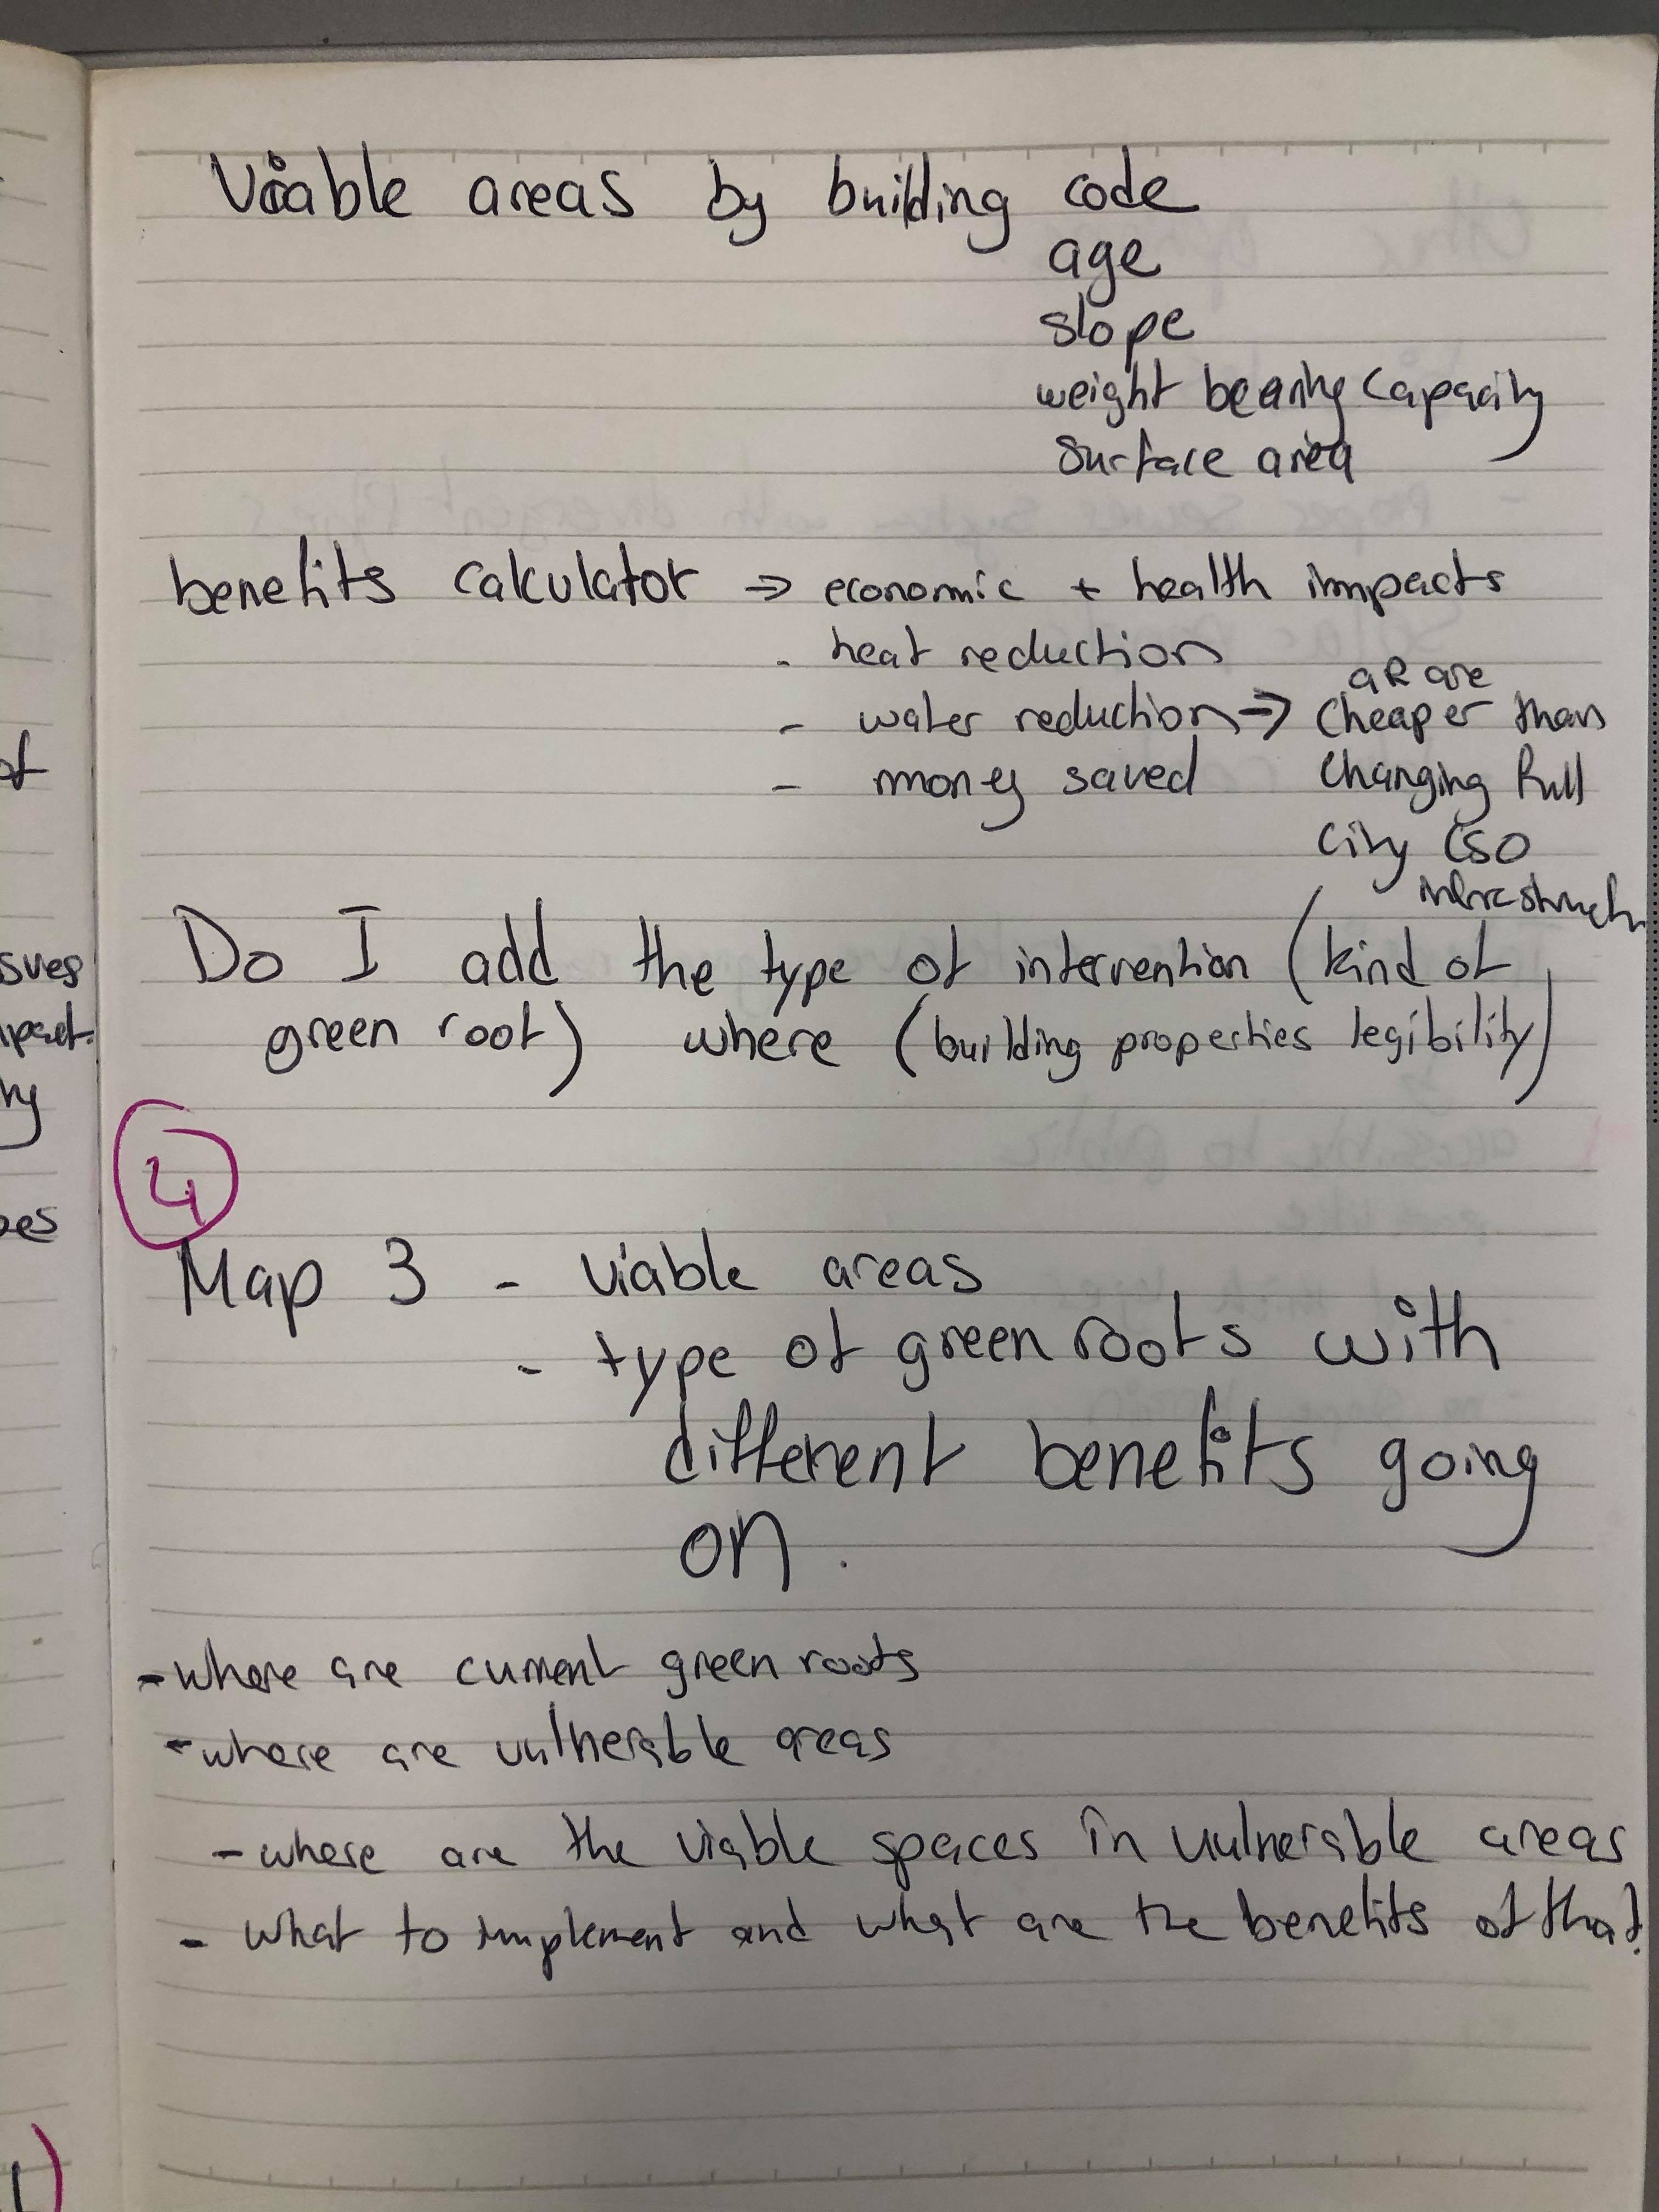 Viable areas by building code
age
slope
weight bearing capacity
surface area
benefits calculator => economic + health impacts
- heat reduction
- water reduction => GR are cheaper than
- money saved changing full
city CSO
infrastructure
Do I add the type of intervention (kind of
green roof) where (building properties legibility)
4
Map 3 - viable areas
- type of green roofs with
different benefits going
on.
- where are current green roofs
- where are vulnerable areas
- where are the viable spaces in vulnerable areas
- what to implement and what are the benefits of that?
of
sues
ny